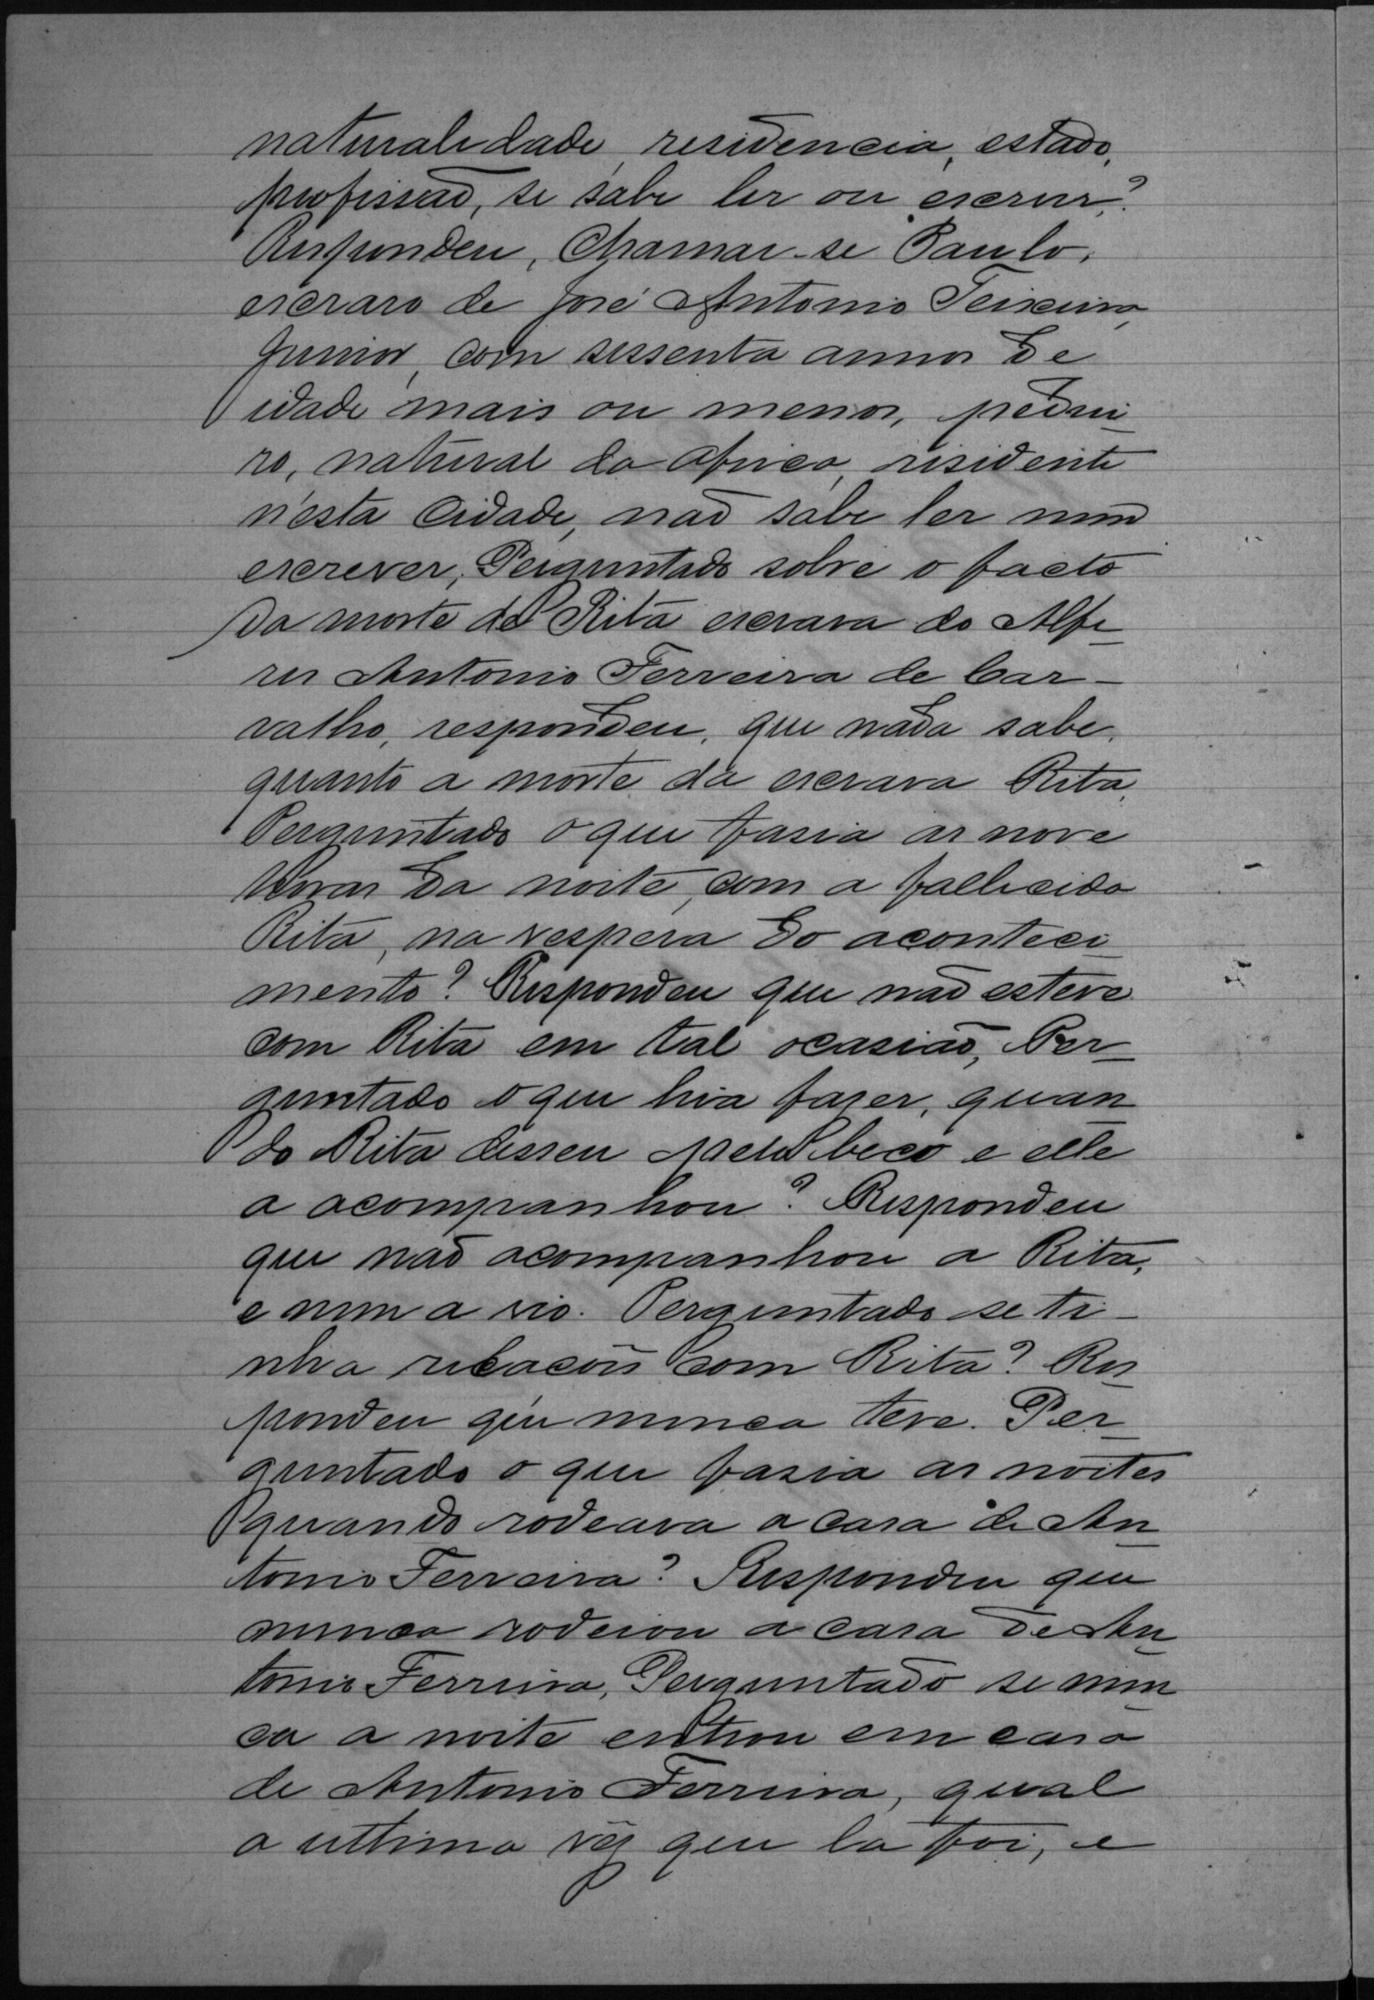 naturalidade, residencia, estado,
profissão, se sabe ler ou escrever?
Respondeu, Chamar-se Paulo,
escravo de José Antonio Teixeira
Junior, com sessenta annos de
idade mais ou menos, pedrei-
ro, natural da Africa, residente
n'esta Cidade, não sabe ler nem
escrever, Perguntado sobre o facto
da morte de Rita escrava do Alfe-
res Antonio Ferreira de Car-
valho, respondeu, que nada sabe,
quanto a morte da escrava Rita,
Perguntado o que fasia as nove
horas da noite, com a fallecida
Rita, na vespera do aconteci-
mento? Respondeu que não esteve
com Rita em tal ocasião, Per-
guntado o que hia fazer, quan-
do Rita desseu pelo beco e elle
a acompanhou? Respondeu
que não acompanhou a Rita,
e nem a vio. Perguntado se ti-
nha relacões com Rita? Res-
pondeu que nunca teve. Per-
guntado o que fasia as noites
quando rodeava a casa de An-
tonio Ferreira? Respondeu que
nunca rodeiou a casa de An-
tonio Ferreira, Perguntado se nun-
ca a noite entrou em casa
de Antonio Ferreira, qual
a ultima vêz que la foi, e